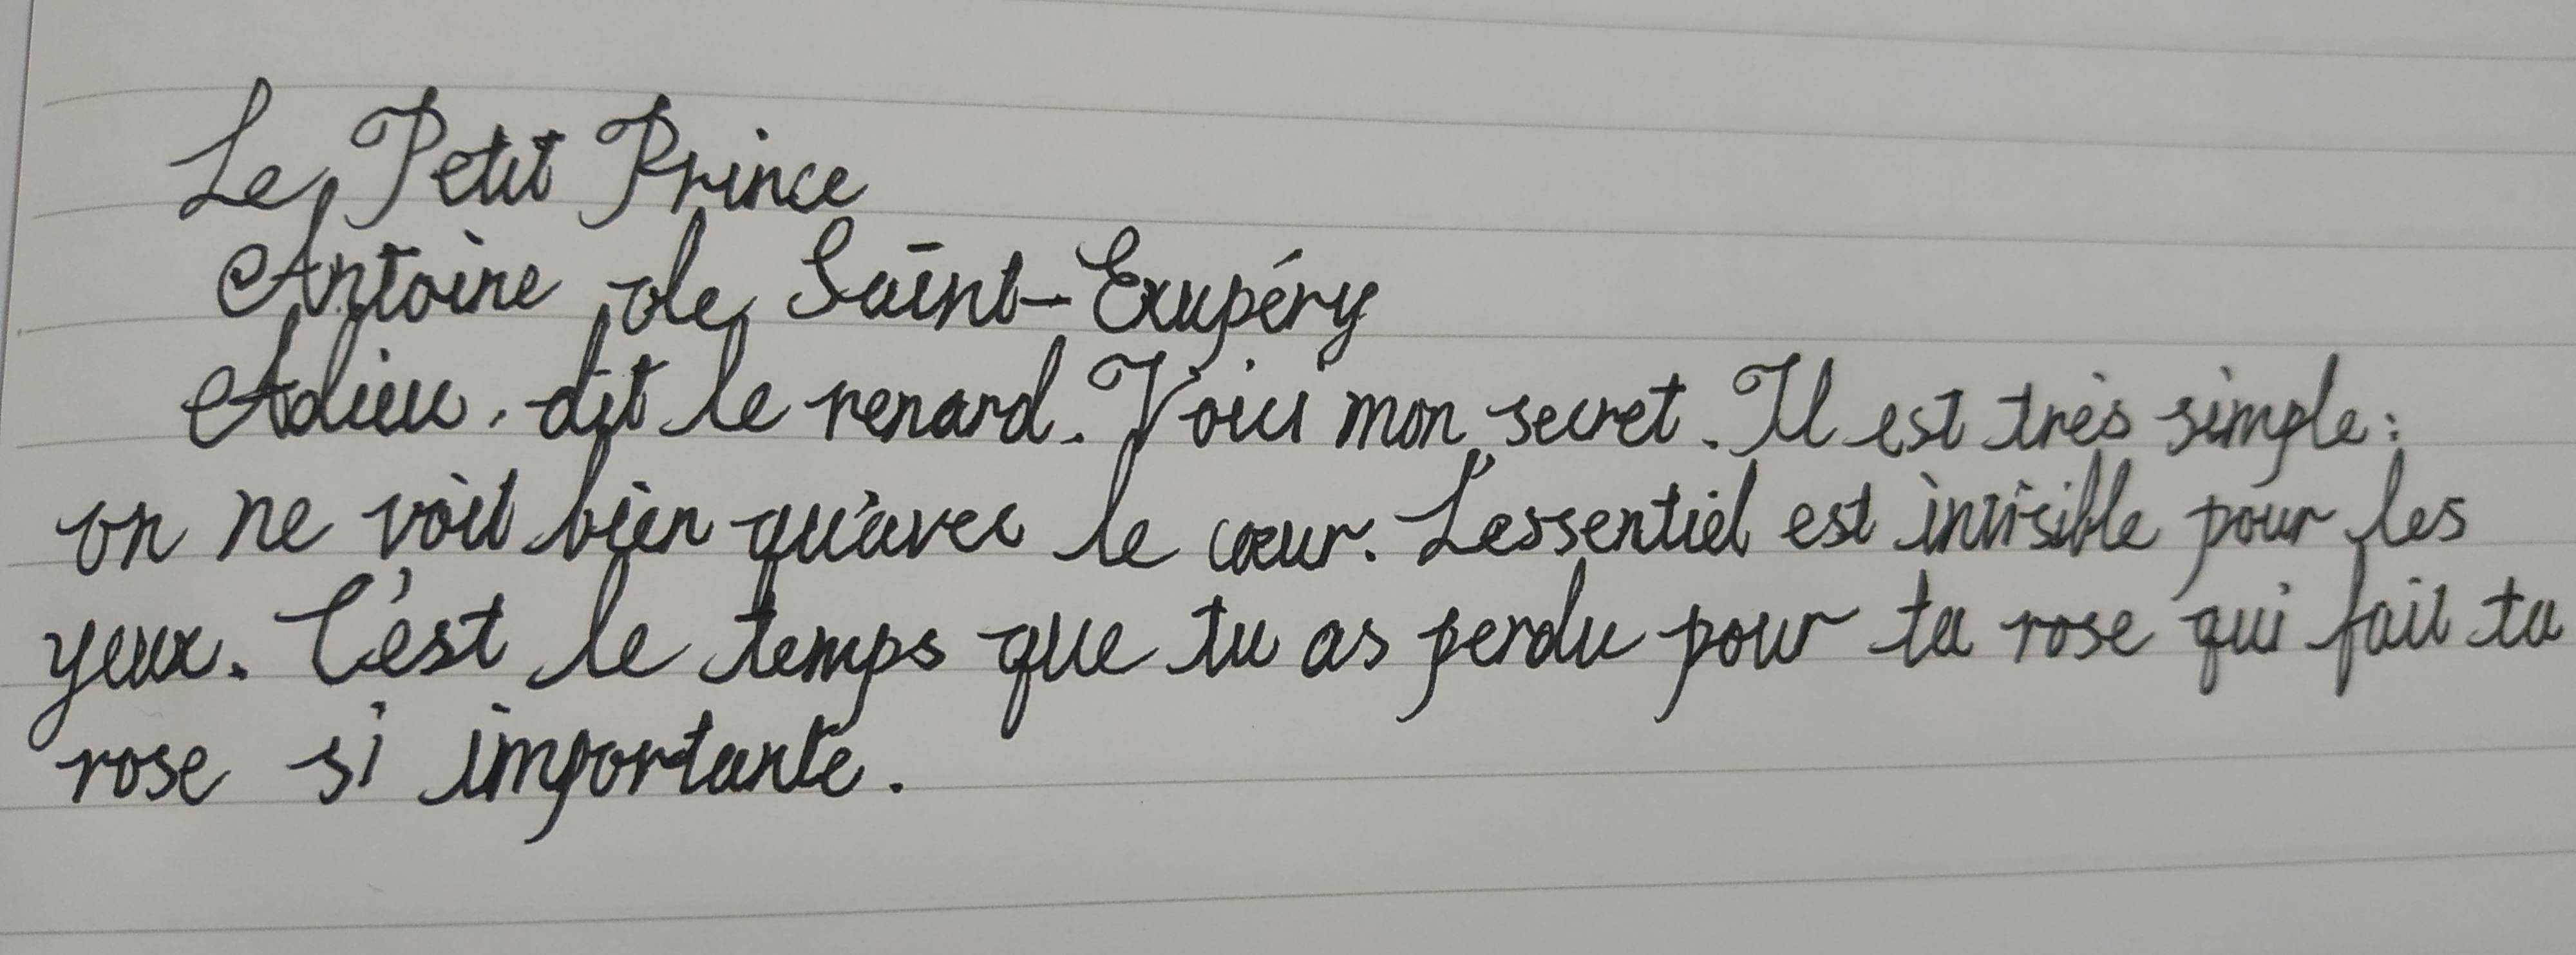 Le Petit Prince
Antoine de Saint-Exupéry
Adieu, dit le renard. Voici mon secret. Il est très simple:
on ne voit bien qu'avec le cœur. L'essentiel est invisible pour les
yeux. C'est le temps que tu as perdu pour ta rose qui fait ta
rose si importante.